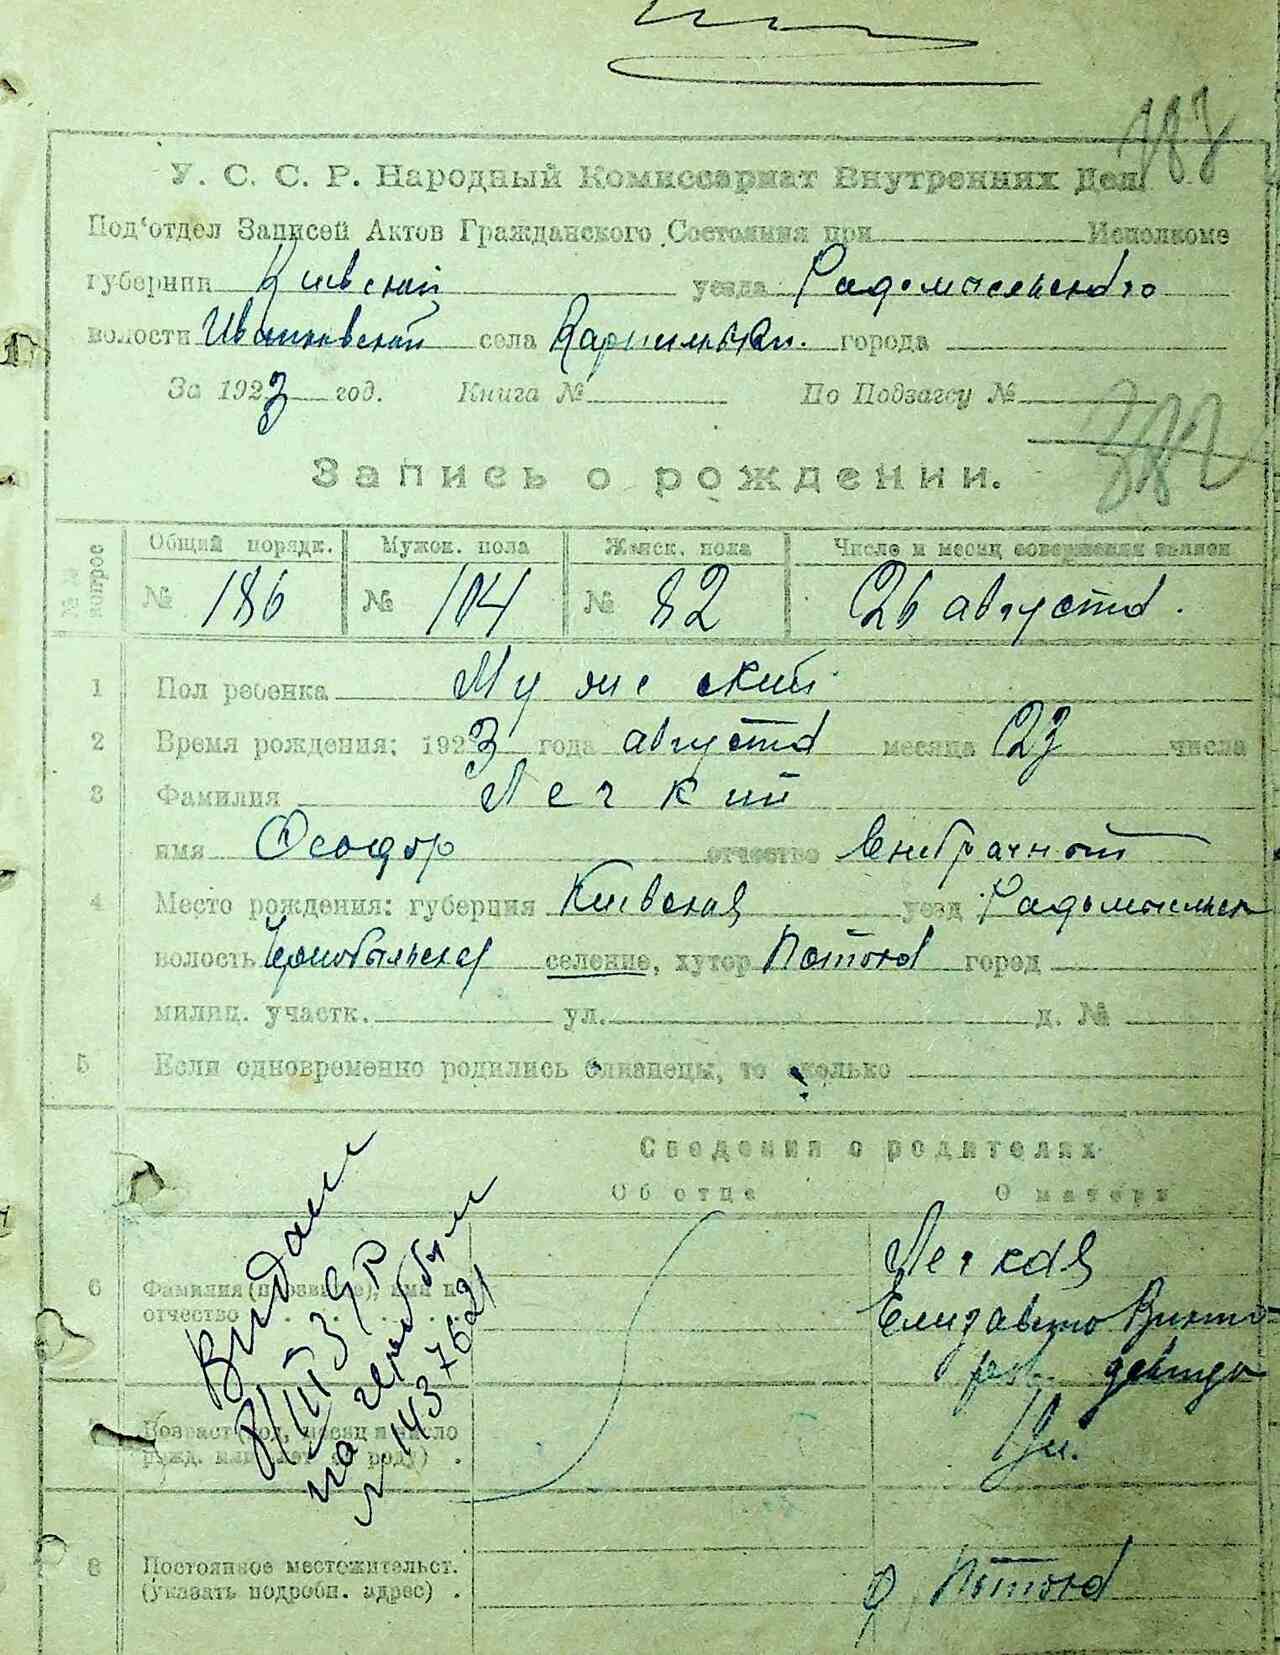 У. С. С. Р. Народный Комиссариат Внутренних Дел
Под'отдел Записей Актов Гражданского Состояния при Исполкоме
губернии Киевской уезда Радомысльского
волости Иванковской села города
За 1923 год. Книга № По Подзагсу №
382
Запись о рождении.
№№ вопрос Общий порядк. Мужск. пола Женск. пола Число и месяц совершения записи
№ 186 № 104 № 82 26 августа.
1 Пол ребенка Мужеский
2 Время рождения: 1923 года августа месяца 23 числа
3 Фамилия Легкий
имя Феодор отчество Внебрачный
4 Место рождения: губерния Киевская уезд Радомысльск
волость Чернобыльская селение, хутор Потоки город
милиц. участк. ул. д. №
5 Если одновременно родились близнецы, то сколько
Сведения о родителях
Об отце О матери
6 Фамилия (прозвище), имя и отчество Легкая
Елизавета Викто-
девица
Возраст (год, месяц и число рожд. или лет от роду) .
8 Постоянное местожительст. (указать подробн. адрес) . Потоки
Видан
на
№ 1437621